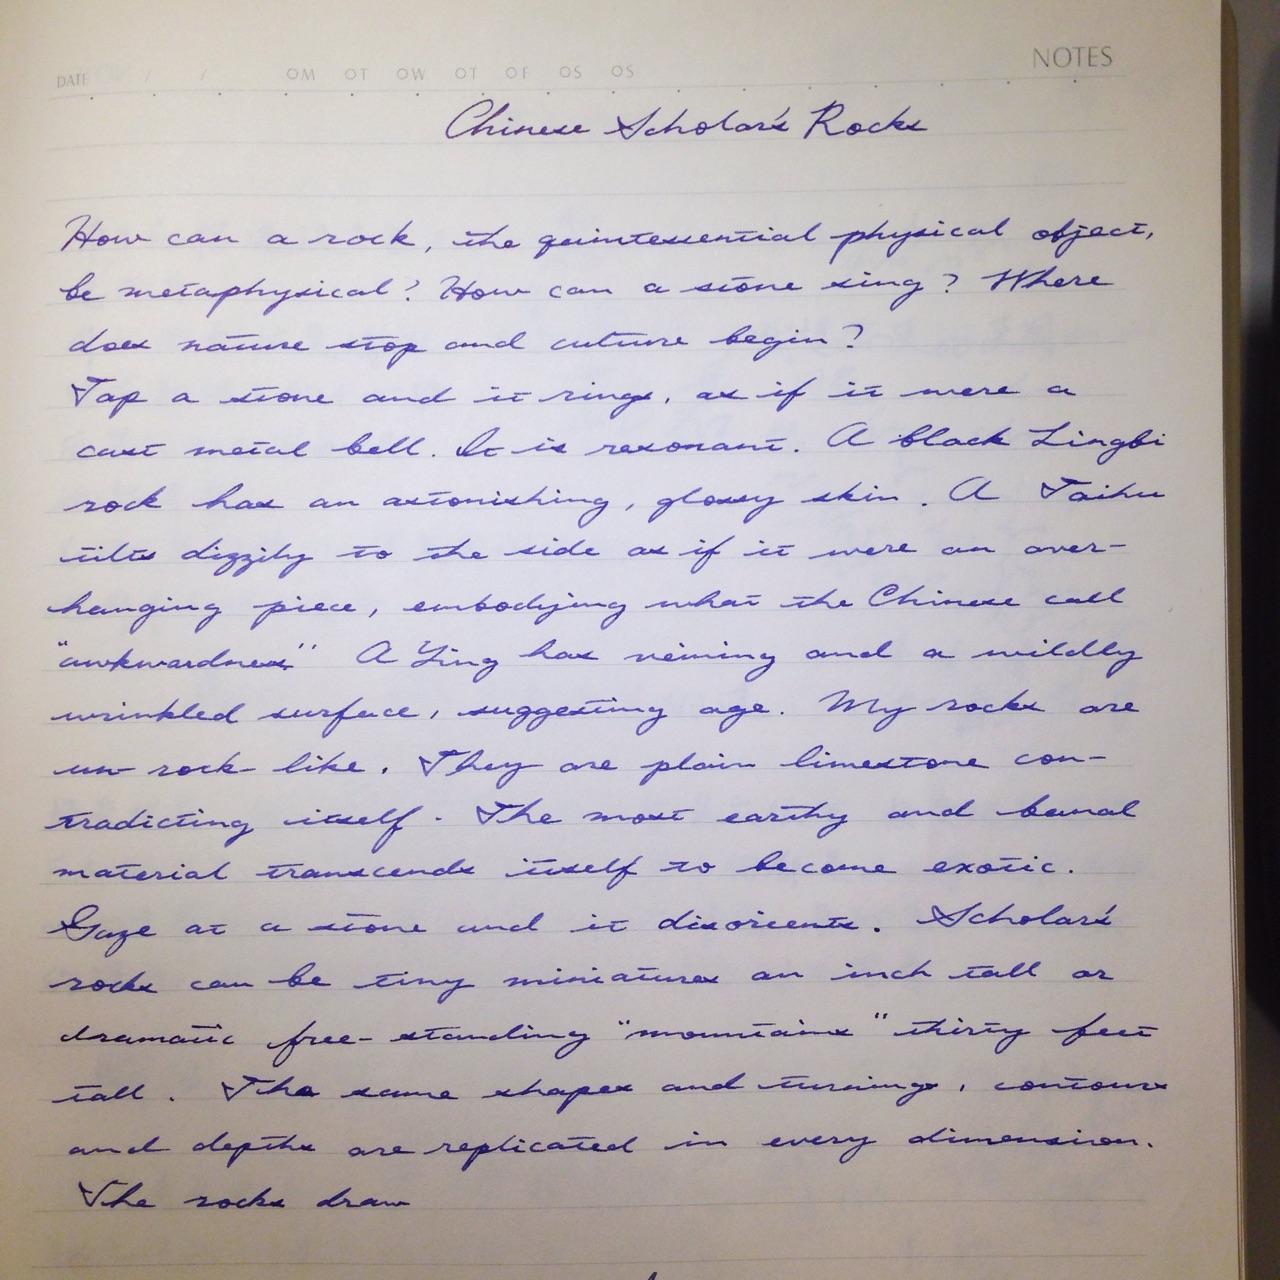 NOTES
DATE / / OM OT OW OT OF OS OS
Chinese Scholar's Rocks
How can a rock, the quintessential physical object,
be metaphysical? How can a stone sing? Where
does nature stop and culture begin?
Tap a stone and it rings, as if it were a
cast metal bell. It is resonant. A black Lingbi
rock has an astonishing, glossy skin. A Taihu
tilts dizzily to the side as if it were an over-
hanging piece, embodying what the Chinese call
"awkwardness" A Ying has veining and a wildly
wrinkled surface, suggesting age. My rocks are
un-rock-like. They are plain limestone con-
tradicting itself. The most earthy and banal
material transcends itself to become exotic.
Gaze at a stone and it disorients. Scholar's
rocks can be tiny miniatures an inch tall or
dramatic free-standing "mountains" thirty feet
tall. The same shapes and turnings, contours
and depths are replicated in every dimension.
The rocks draw